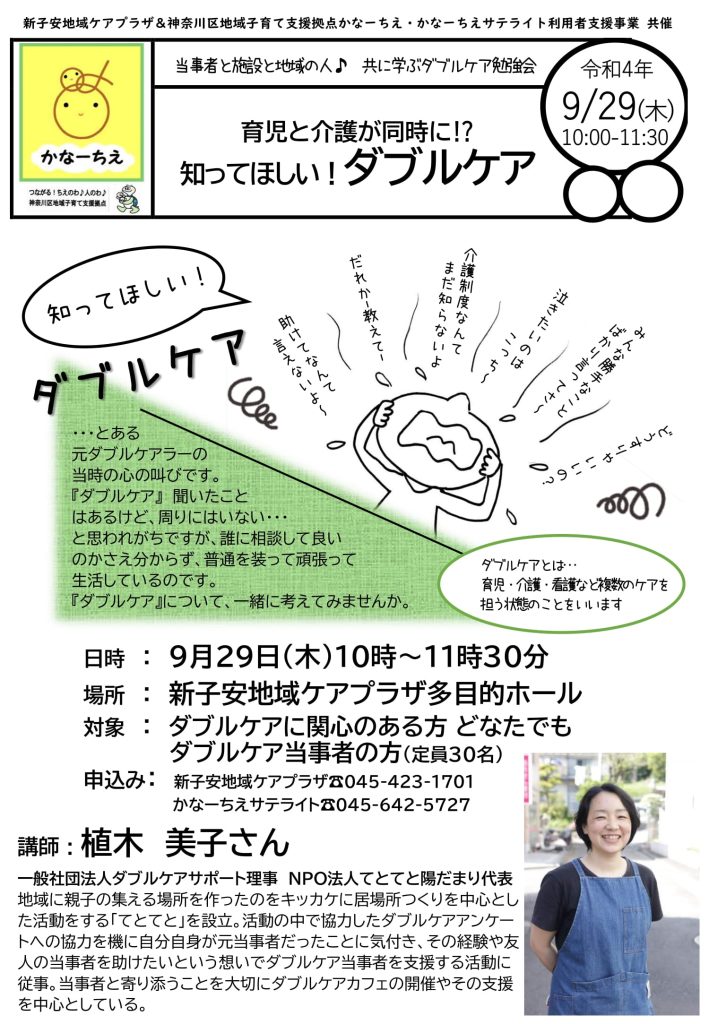 新子安地域ケアプラザ＆神奈川区地域子育て支援拠点かなーちえ・かなーちえサテライト利用者支援事業 共催
かなーちえ
つながる！ちえのわ♪人のわ♪
神奈川区地域子育て支援拠点
当事者と施設と地域の人♪ 共に学ぶダブルケア勉強会
育児と介護が同時に!?
知ってほしい！ダブルケア
令和4年
9/29(木)
10:00-11:30
知ってほしい！
ダブルケア
助けてなんて
言えないよ～
だれか教えてー
介護制度なんて
まだ知らないよ
泣きたいのは
こっち～
みんな勝手なこと
ばかり言ってさ～
どうすりゃいいの?
･･･とある
元ダブルケアラーの
当時の心の叫びです。
『ダブルケア』 聞いたこと
はあるけど、周りにはいない･･･
と思われがちですが、誰に相談して良い
のかさえ分からず、普通を装って頑張って
生活しているのです。
『ダブルケア』について、一緒に考えてみませんか。
ダブルケアとは･･
育児・介護・看護など複数のケアを
担う状態のことをいいます
日時 ： 9月29日(木)10時～11時30分
場所 ： 新子安地域ケアプラザ多目的ホール
対象 ： ダブルケアに関心のある方 どなたでも
ダブルケア当事者の方(定員30名)
申込み： 新子安地域ケアプラザ☎045-423-1701
かなーちえサテライト☎045-642-5727
講師：植木 美子さん
一般社団法人ダブルケアサポート理事 NPO法人てとてと陽だまり代表
地域に親子の集える場所を作ったのをキッカケに居場所つくりを中心とし
た活動をする「てとてと」を設立。活動の中で協力したダブルケアアンケー
トへの協力を機に自分自身が元当事者だったことに気付き、その経験や友
人の当事者を助けたいという想いでダブルケア当事者を支援する活動に
従事。当事者と寄り添うことを大切にダブルケアカフェの開催やその支援
を中心としている。